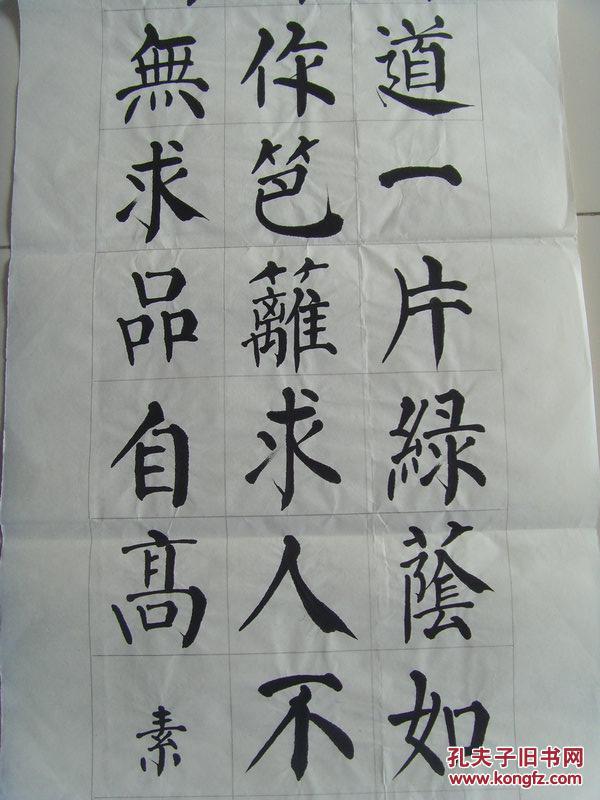 道一片綠蔭如
作笆籬求人不
無求品自高素
孔夫子旧书网
www.kongfz.com